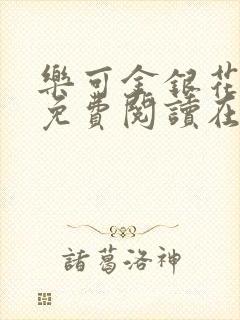 樂可金銀花
免費閱讀在
諸葛洛神